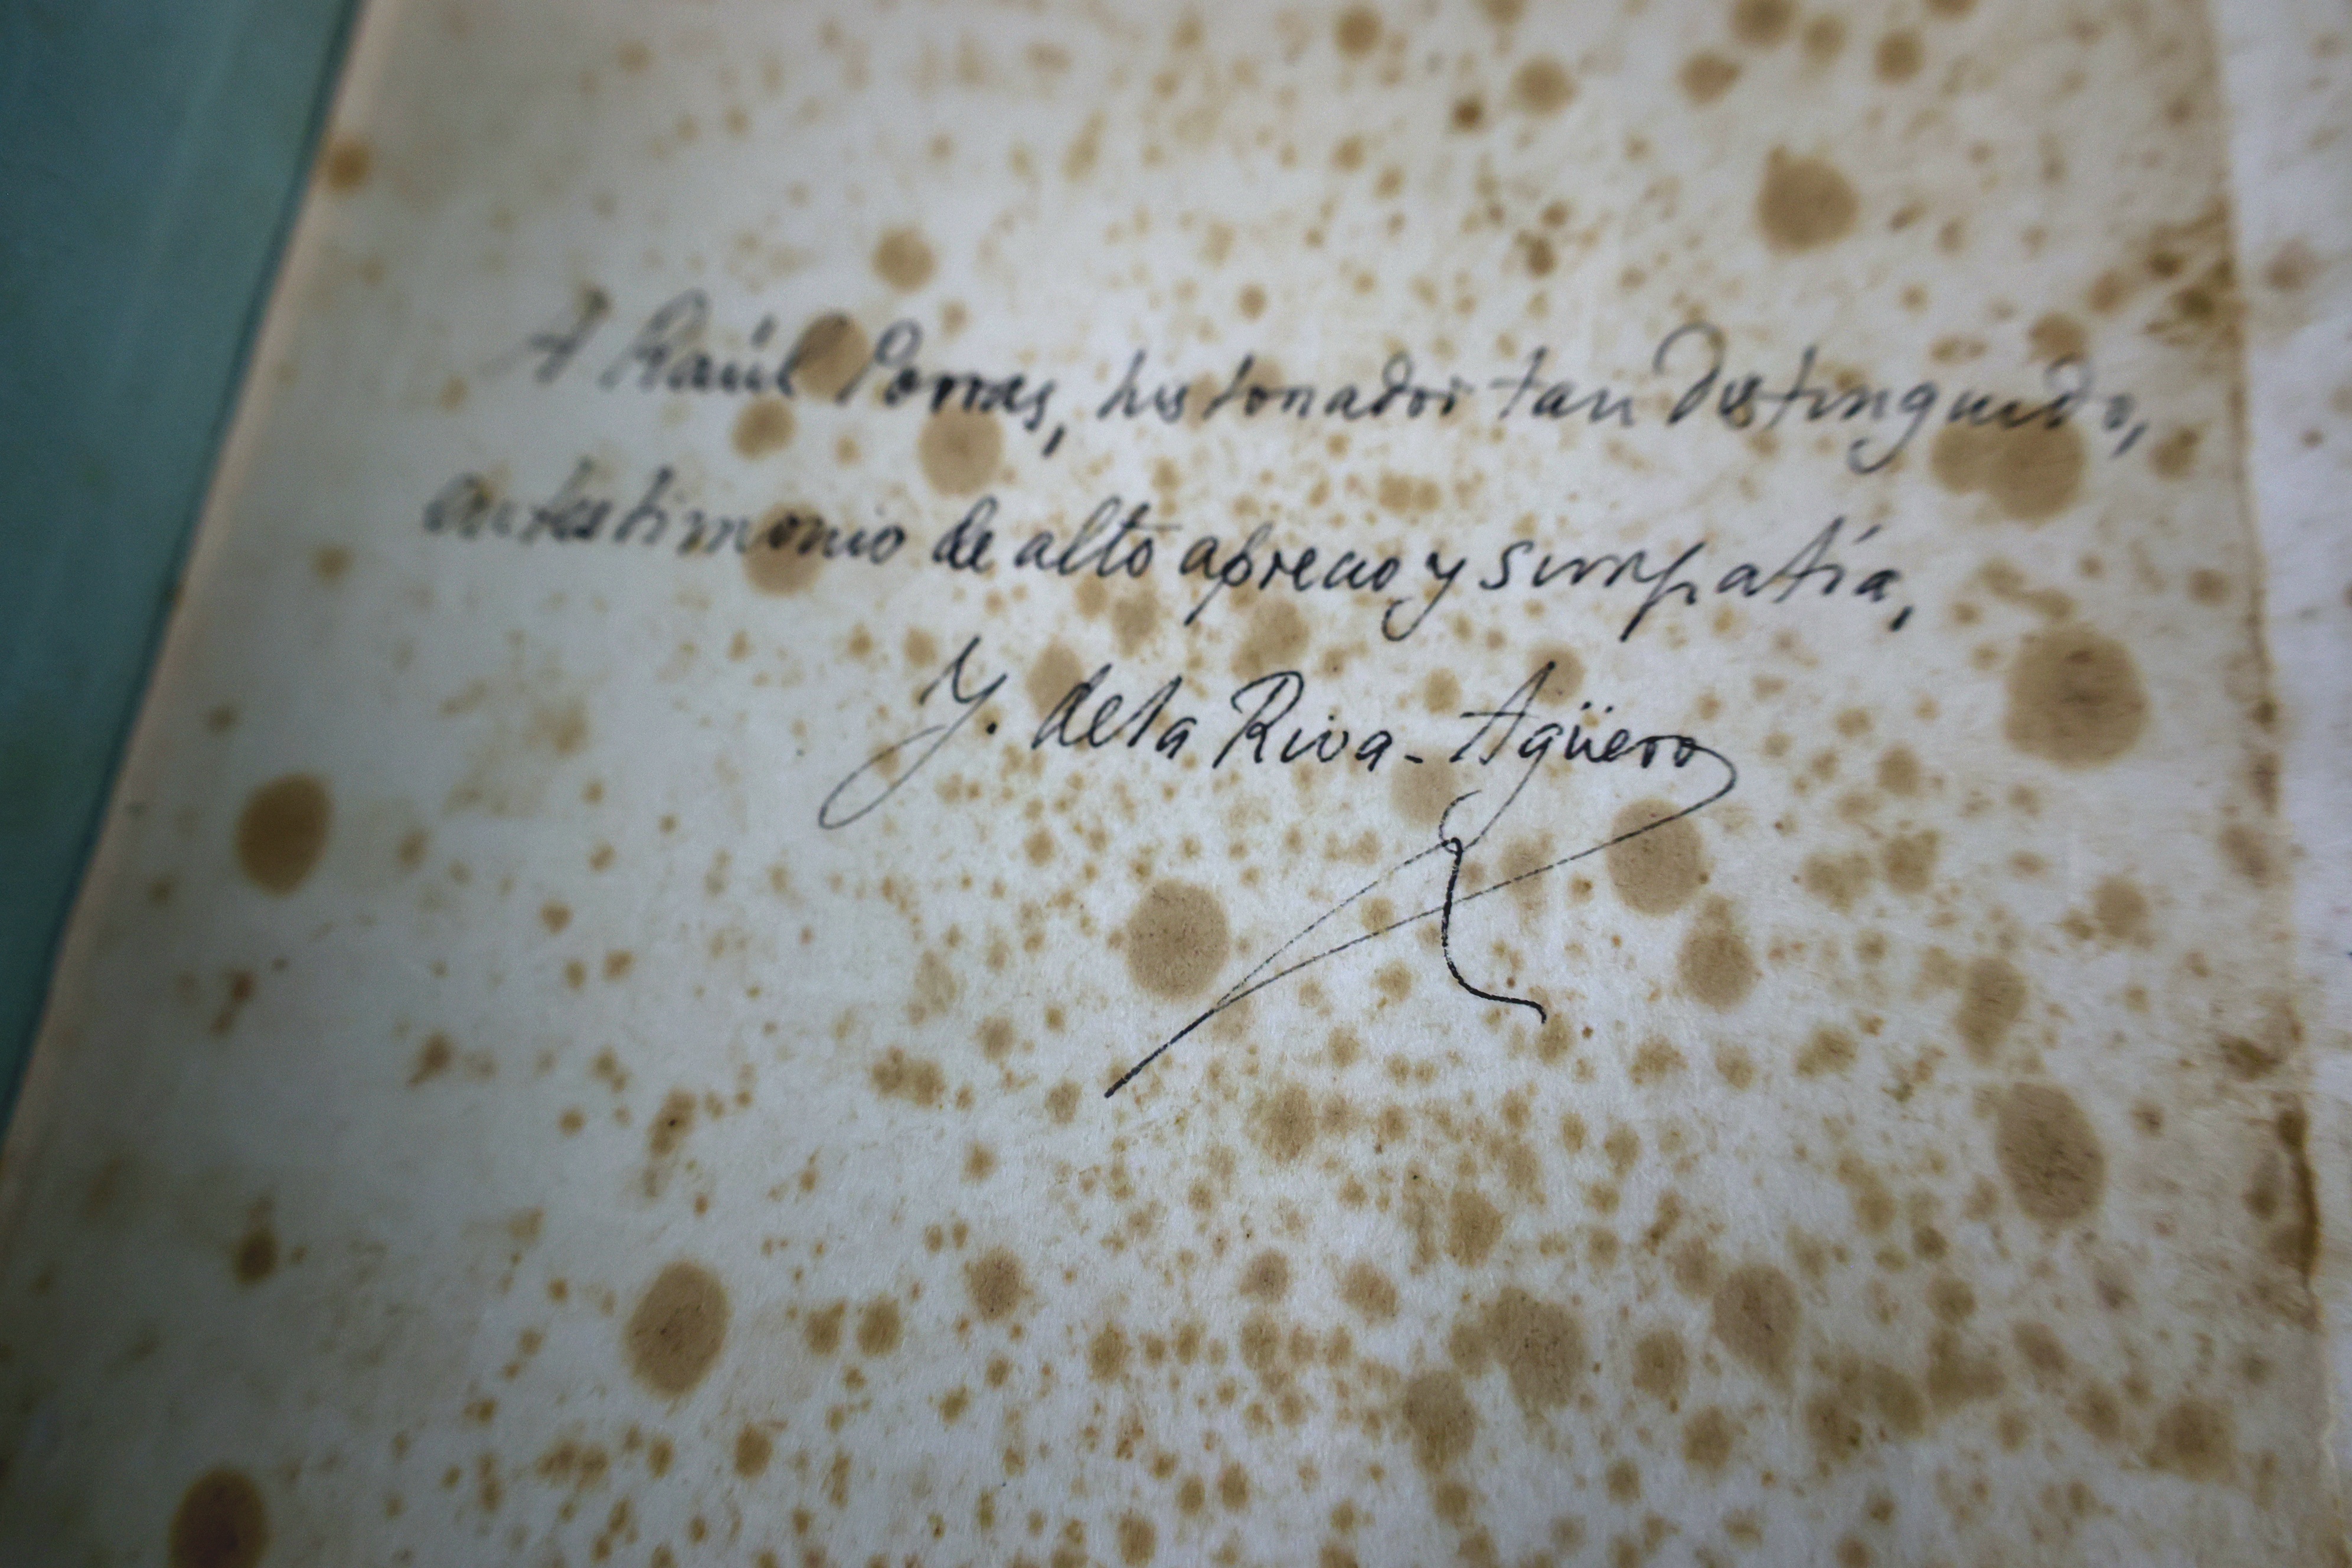 A Raúl Porras, historiador tan distinguido,
en testimonio de alto aprecio y simpatía,
J. de la Riva-Agüero